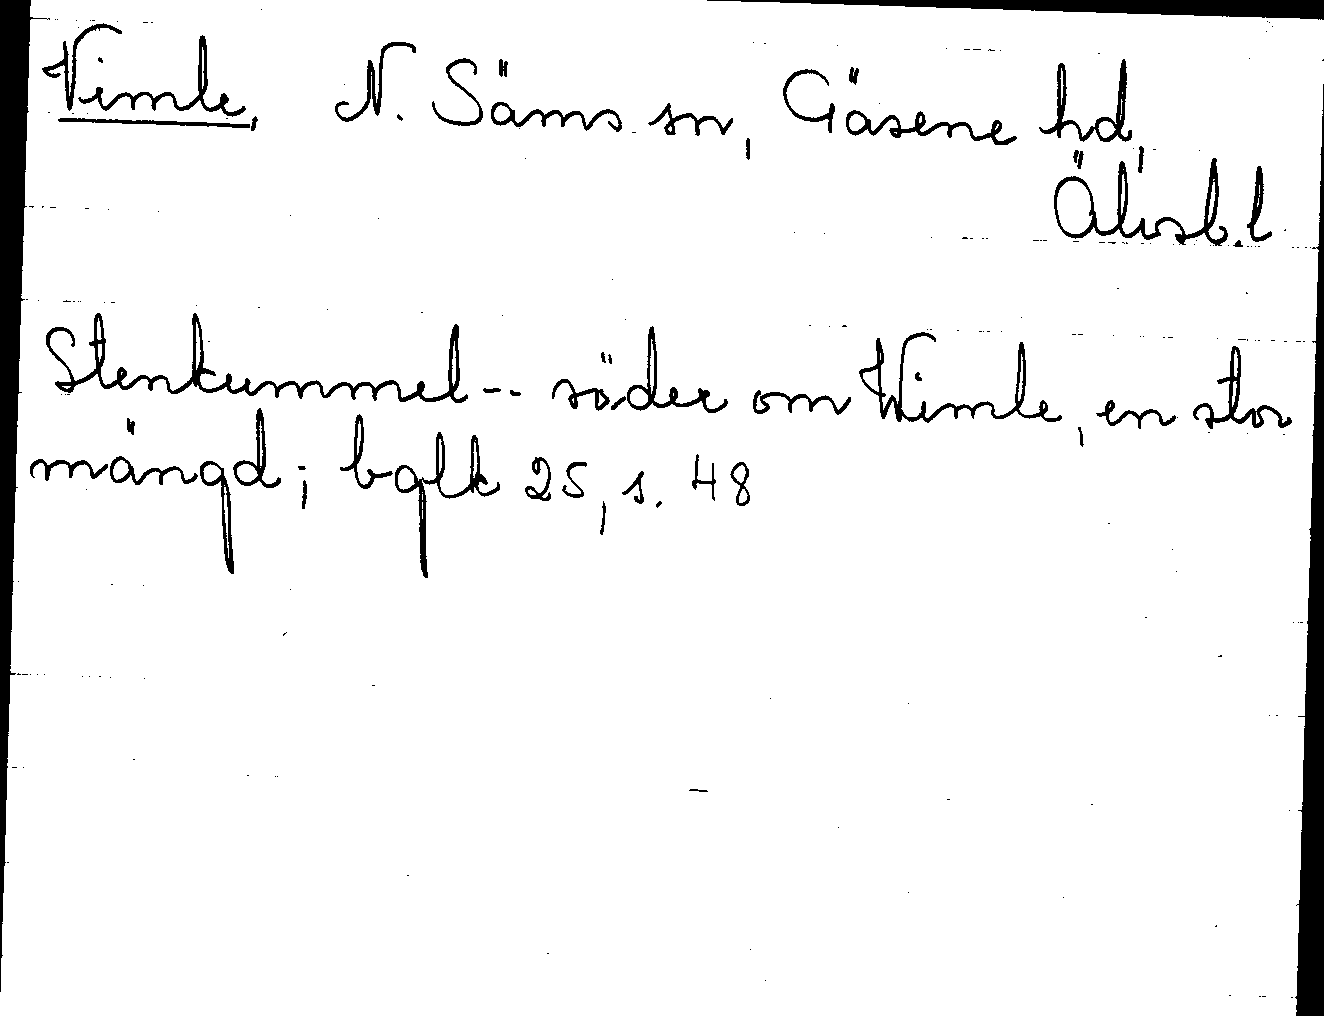 Vimle, N. Säms sn, Gäsene hd,
Älvsb. l
Stenkummel -- söder om Wimle, en stor
mängd; bglk 25, s. 48